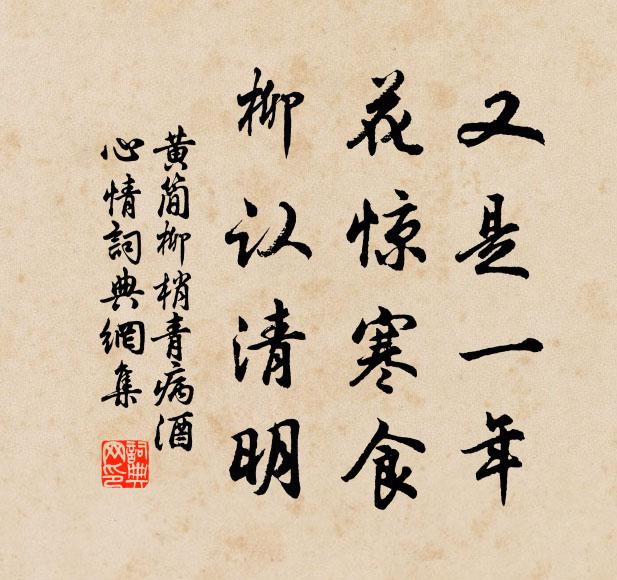 又是一年
花惊寒食
柳认清明
黄简柳梢青病酒
心情詞典網集
詞典网印